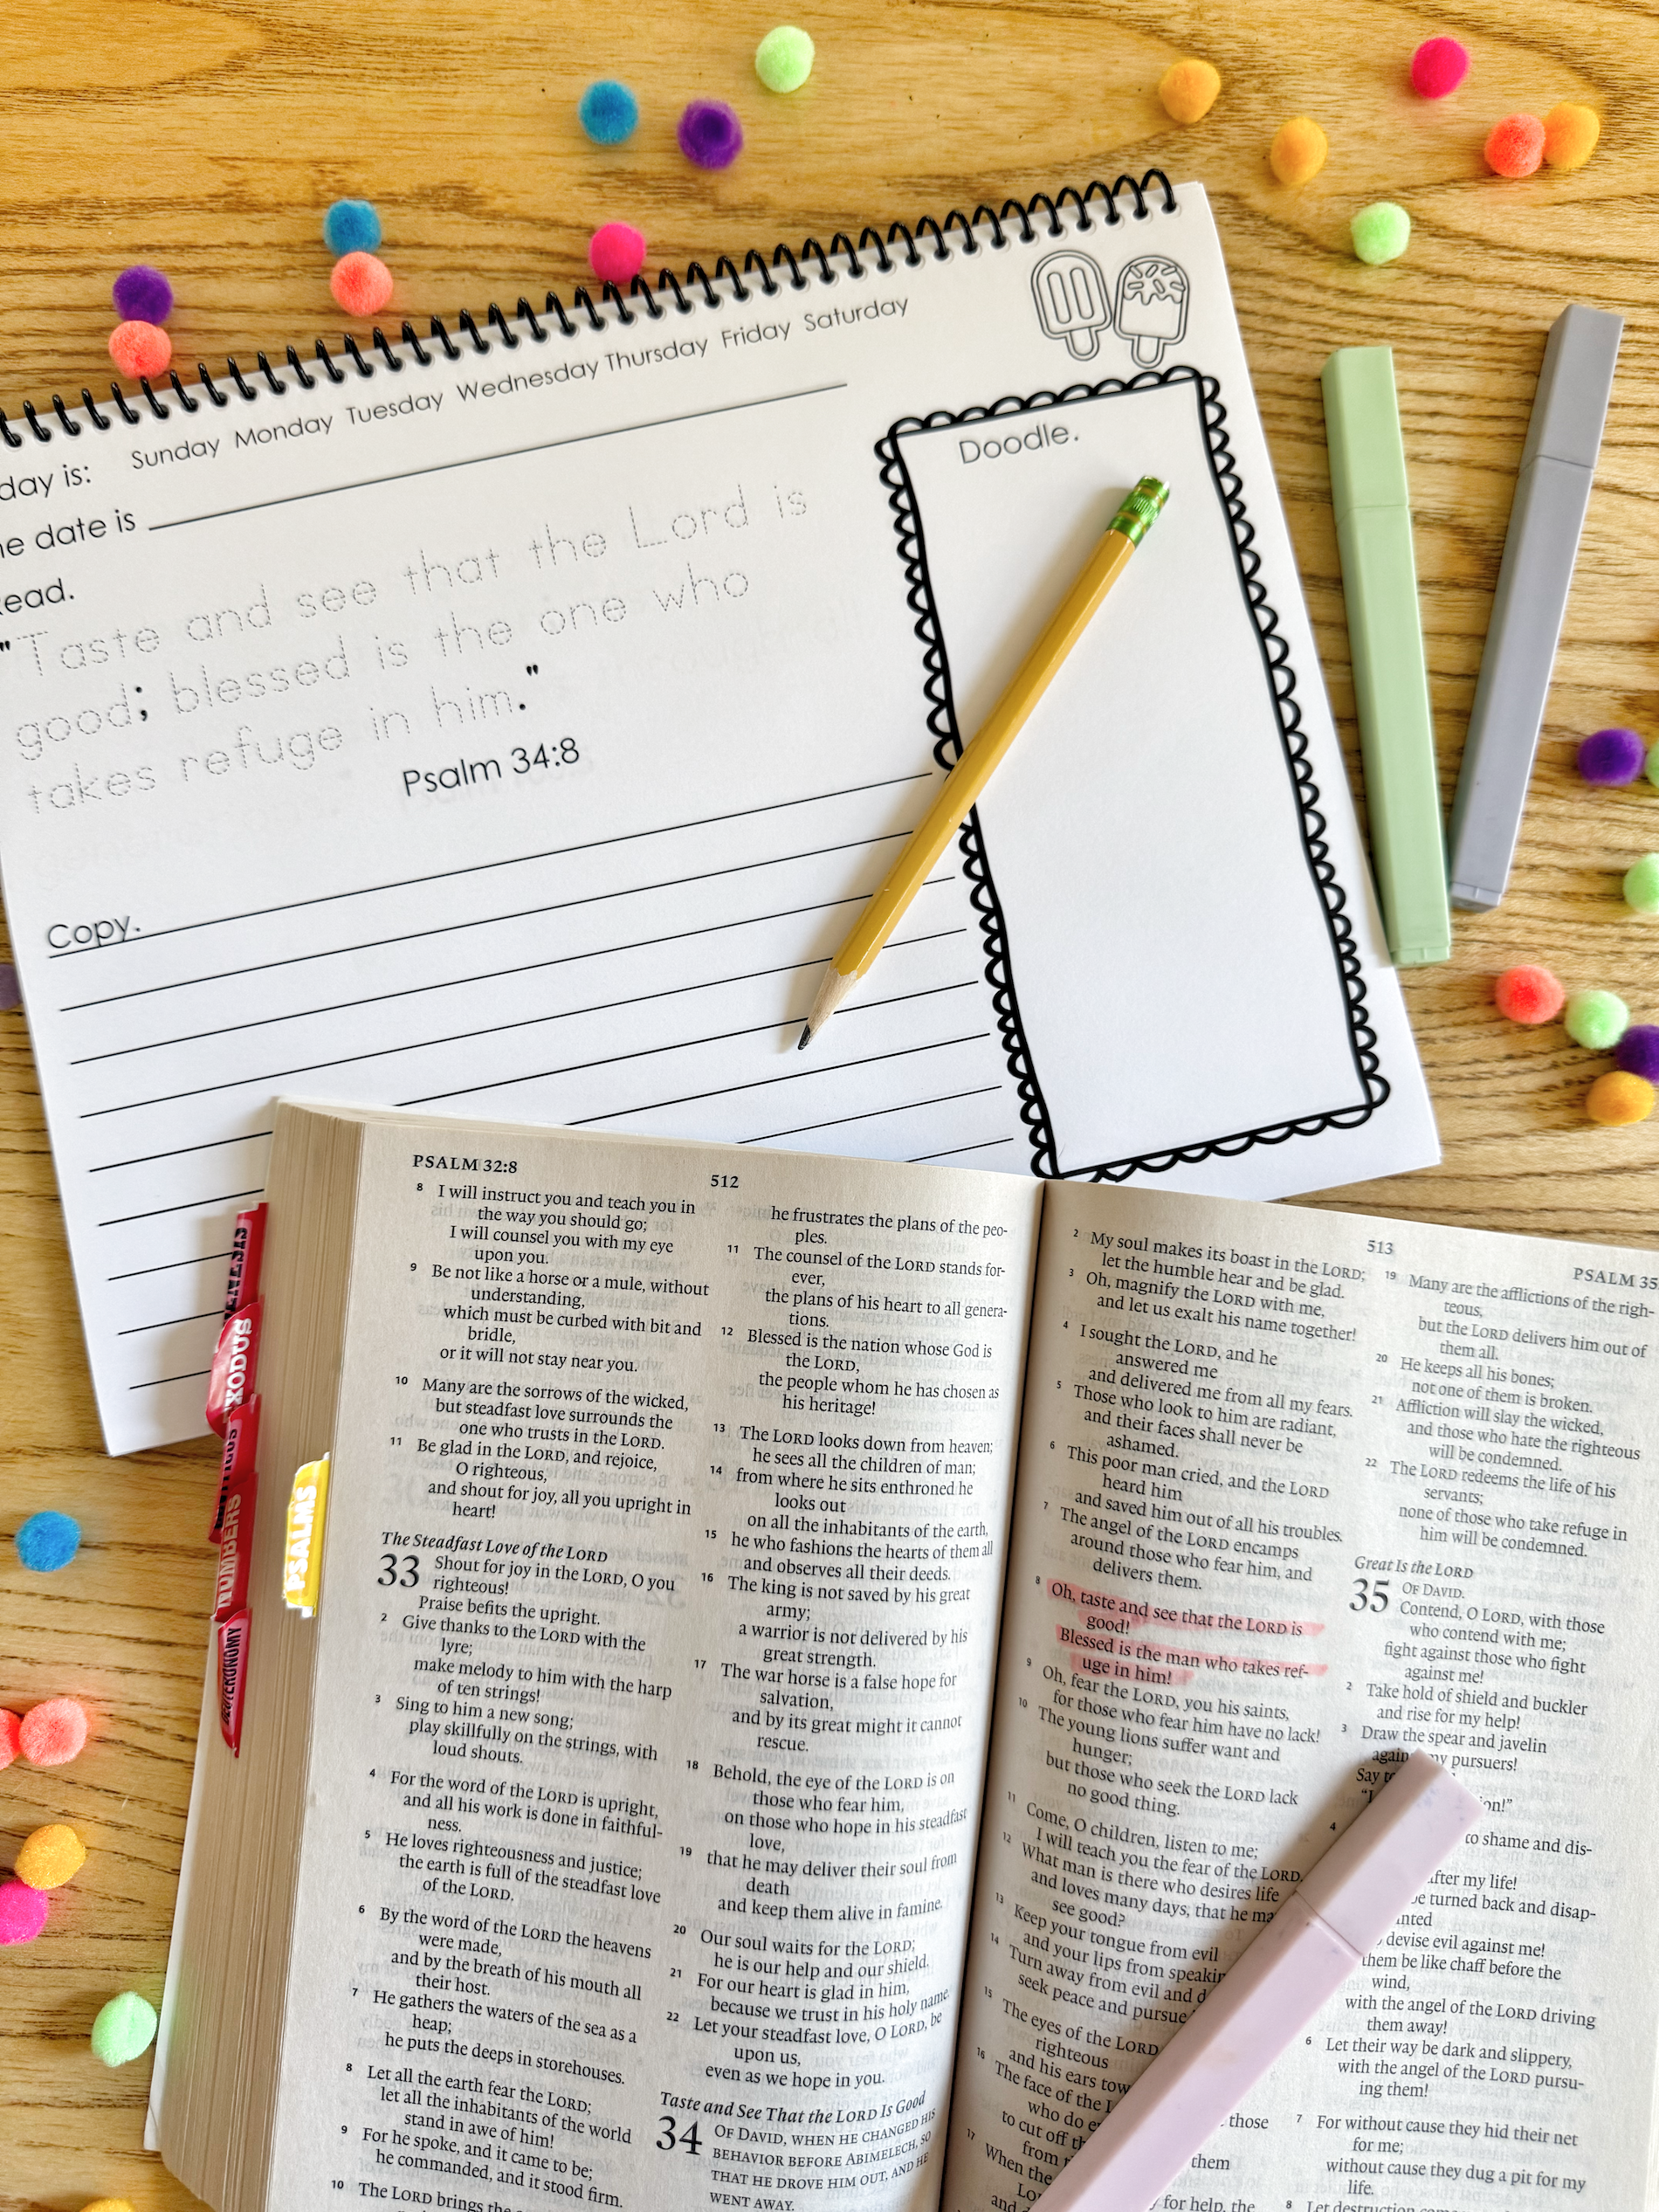 Sunday Monday Tuesday Wednesday Thursday Friday Saturday
day is:
date is
Doodle.
"Taste and see that the Lord is
good; blessed is the one who
takes refuge in him."
Psalm 34:8
Copy.
GENESIS
EXODUS
LEVITICUS
NUMBERS
DEUTERONOMY
PSALMS
PSALM 32:8
512
8 I will instruct you and teach you in
the way you should go;
I will counsel you with my eye
upon you.
9 Be not like a horse or a mule, without
understanding,
which must be curbed with bit and
bridle,
or it will not stay near you.
10 Many are the sorrows of the wicked,
but steadfast love surrounds the
one who trusts in the LORD.
11 Be glad in the LORD, and rejoice,
O righteous,
and shout for joy, all you upright in
heart!
The Steadfast Love of the LORD
33 Shout for joy in the LORD, O you
righteous!
Praise befits the upright.
2 Give thanks to the LORD with the
lyre;
make melody to him with the harp
of ten strings!
3 Sing to him a new song;
play skillfully on the strings, with
loud shouts.
4 For the word of the LORD is upright,
and all his work is done in faithful-
ness.
5 He loves righteousness and justice;
the earth is full of the steadfast love
of the LORD.
6 By the word of the LORD the heavens
were made,
and by the breath of his mouth all
their host.
7 He gathers the waters of the sea as a
heap;
he puts the deeps in storehouses.
8 Let all the earth fear the LORD;
let all the inhabitants of the world
stand in awe of him!
9 For he spoke, and it came to be;
he commanded, and it stood firm.
10 The LORD brings the
he frustrates the plans of the peo-
ples.
11 The counsel of the LORD stands for-
ever,
the plans of his heart to all genera-
tions.
12 Blessed is the nation whose God is
the LORD,
the people whom he has chosen as
his heritage!
13 The LORD looks down from heaven;
he sees all the children of man;
14 from where he sits enthroned he
looks out
on all the inhabitants of the earth,
15 he who fashions the hearts of them all
and observes all their deeds.
16 The king is not saved by his great
army;
a warrior is not delivered by his
great strength.
17 The war horse is a false hope for
salvation,
and by its great might it cannot
rescue.
18 Behold, the eye of the LORD is on
those who fear him,
on those who hope in his steadfast
love,
19 that he may deliver their soul from
death
and keep them alive in famine.
20 Our soul waits for the LORD;
he is our help and our shield.
21 For our heart is glad in him,
because we trust in his holy name.
22 Let your steadfast love, O LORD, be
upon us,
even as we hope in you.
Taste and See That the LORD Is Good
34 OF DAVID, WHEN HE CHANGED HIS
BEHAVIOR BEFORE ABIMELECH, SO
THAT HE DROVE HIM OUT, AND HE
WENT AWAY.
513
PSALM 35
2 My soul makes its boast in the LORD;
let the humble hear and be glad.
3 Oh, magnify the LORD with me,
and let us exalt his name together!
4 I sought the LORD, and he
answered me
and delivered me from all my fears.
5 Those who look to him are radiant,
and their faces shall never be
ashamed.
6 This poor man cried, and the LORD
heard him
and saved him out of all his troubles.
7 The angel of the LORD encamps
around those who fear him, and
delivers them.
8 Oh, taste and see that the LORD is
good!
Blessed is the man who takes ref-
uge in him!
9 Oh, fear the LORD, you his saints,
for those who fear him have no lack!
10 The young lions suffer want and
hunger;
but those who seek the LORD lack
no good thing.
11 Come, O children, listen to me;
I will teach you the fear of the LORD.
12 What man is there who desires life
and loves many days, that he
see good?
13 Keep your tongue from evil
and your lips from
14 Turn away from evil and
seek peace and pursue
15 The eyes of the LORD
righteous
and his ears
16 The face of the
who do
to cut off
from
17 When the
and
19 Many are the afflictions of the righ-
teous,
but the LORD delivers him out of
them all.
20 He keeps all his bones;
not one of them is broken.
21 Affliction will slay the wicked,
and those who hate the righteous
will be condemned.
22 The LORD redeems the life of his
servants;
none of those who take refuge in
him will be condemned.
Great Is the LORD
35 OF DAVID.
Contend, O LORD, with those
who contend with me;
fight against those who fight
against me!
2 Take hold of shield and buckler
and rise for my help!
3 Draw the spear and javelin
my pursuers!
Say
4
to shame and dis-
after my life!
be turned back and disap-
devise evil against me!
them be like chaff before the
wind,
with the angel of the LORD driving
them away!
6 Let their way be dark and slippery,
with the angel of the LORD pursu-
ing them!
those
7 For without cause they hid their net
for me;
them
without cause they dug a pit for my
life.
for help, the
8 Let destruction